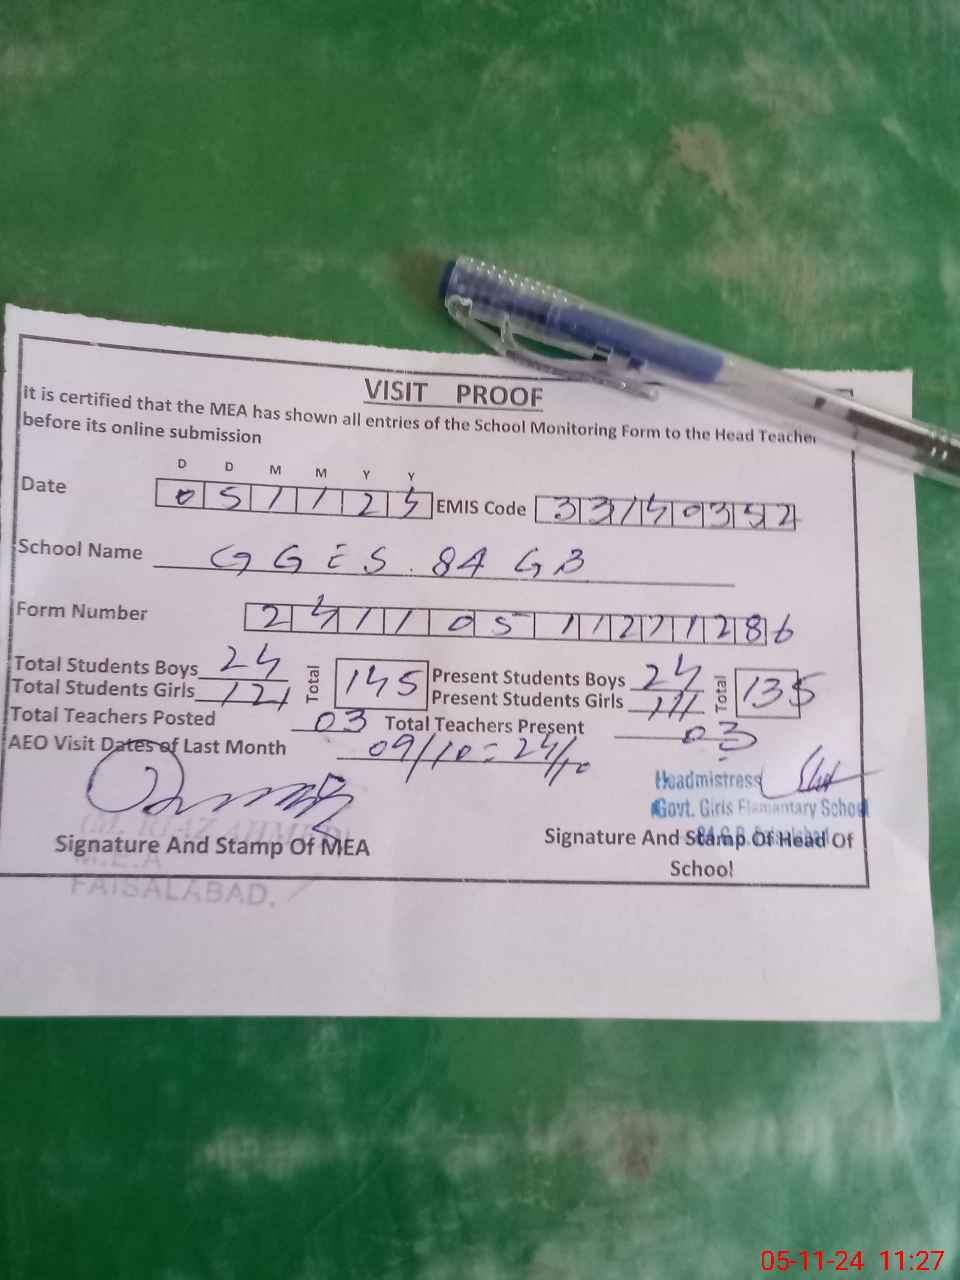 VISIT PROOF
it is certified that the MEA has shown all entries of the School Monitoring Form to the Head Teacher
before its online submission
D D M M Y Y
Date 0 5 1 1 2 4 EMIS Code 3 3 1 4 0 3 5 2
School Name GGES. 84 GB
Form Number 2 4 1 1 0 5 1 1 2 7 1 2 8 6
Total Students Boys 24 Total 145 Present Students Boys 24 Total 135
Total Students Girls 121 Present Students Girls 111
Total Teachers Posted 03 Total Teachers Present 03
AEO Visit Dates of Last Month 09/10 = 24/10
Headmistress
Govt. Girls Elamantary School
(M. RIAZ AHMED)
Signature And Stamp Of MEA Signature And Stamp Of Head Of
School
M.E.A
FAISALABAD.
05-11-24 11:27